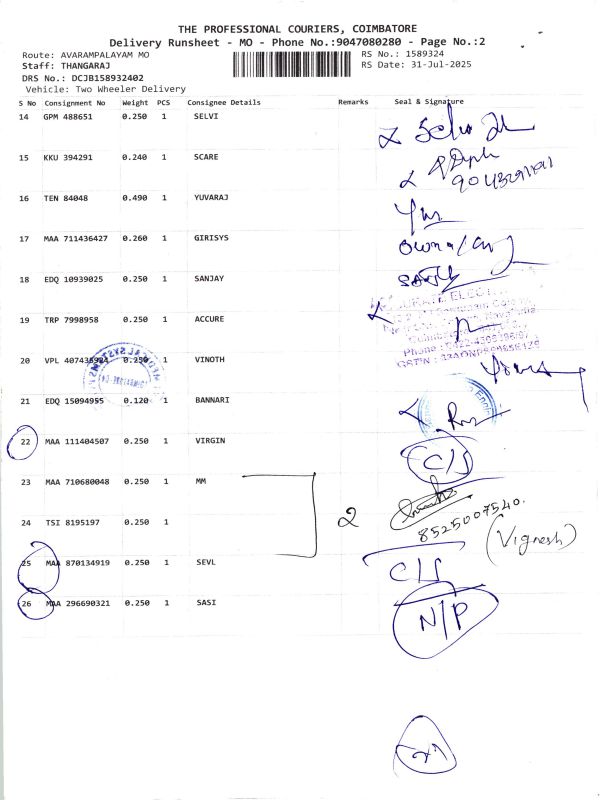 THE PROFESSIONAL COURIERS, COIMBATORE
Delivery Runsheet - MO - Phone No.:9047080280 - Page No.:2
Route: AVARAMPALAYAM MO
RS No.: 1589324
Staff: THANGARAJ
RS Date: 31-Jul-2025
DRS No.: DCJB158932402
Vehicle: Two Wheeler Delivery
S No Consignment No Weight PCS Consignee Details Remarks Seal & Signature
14 GPM 488651 0.250 1 SELVI
15 KKU 394291 0.240 1 SCARE
16 TEN 84048 0.490 1 YUVARAJ
17 MAA 711436427 0.260 1 GIRISYS
18 EDQ 10939025 0.250 1 SANJAY
19 TRP 7998958 0.250 1 ACCURE
20 VPL 407435984 0.250 1 VINOTH
21 EDQ 15094955 0.120 1 BANNARI
22 MAA 111404507 0.250 1 VIRGIN C/S
23 MAA 710680048 0.250 1 MM
2
8525007540.
24 TSI 8195197 0.250 1
(Vignesh)
25 MAA 870134919 0.250 1 SEVL C/S
26 MAA 296690321 0.250 1 SASI N/P